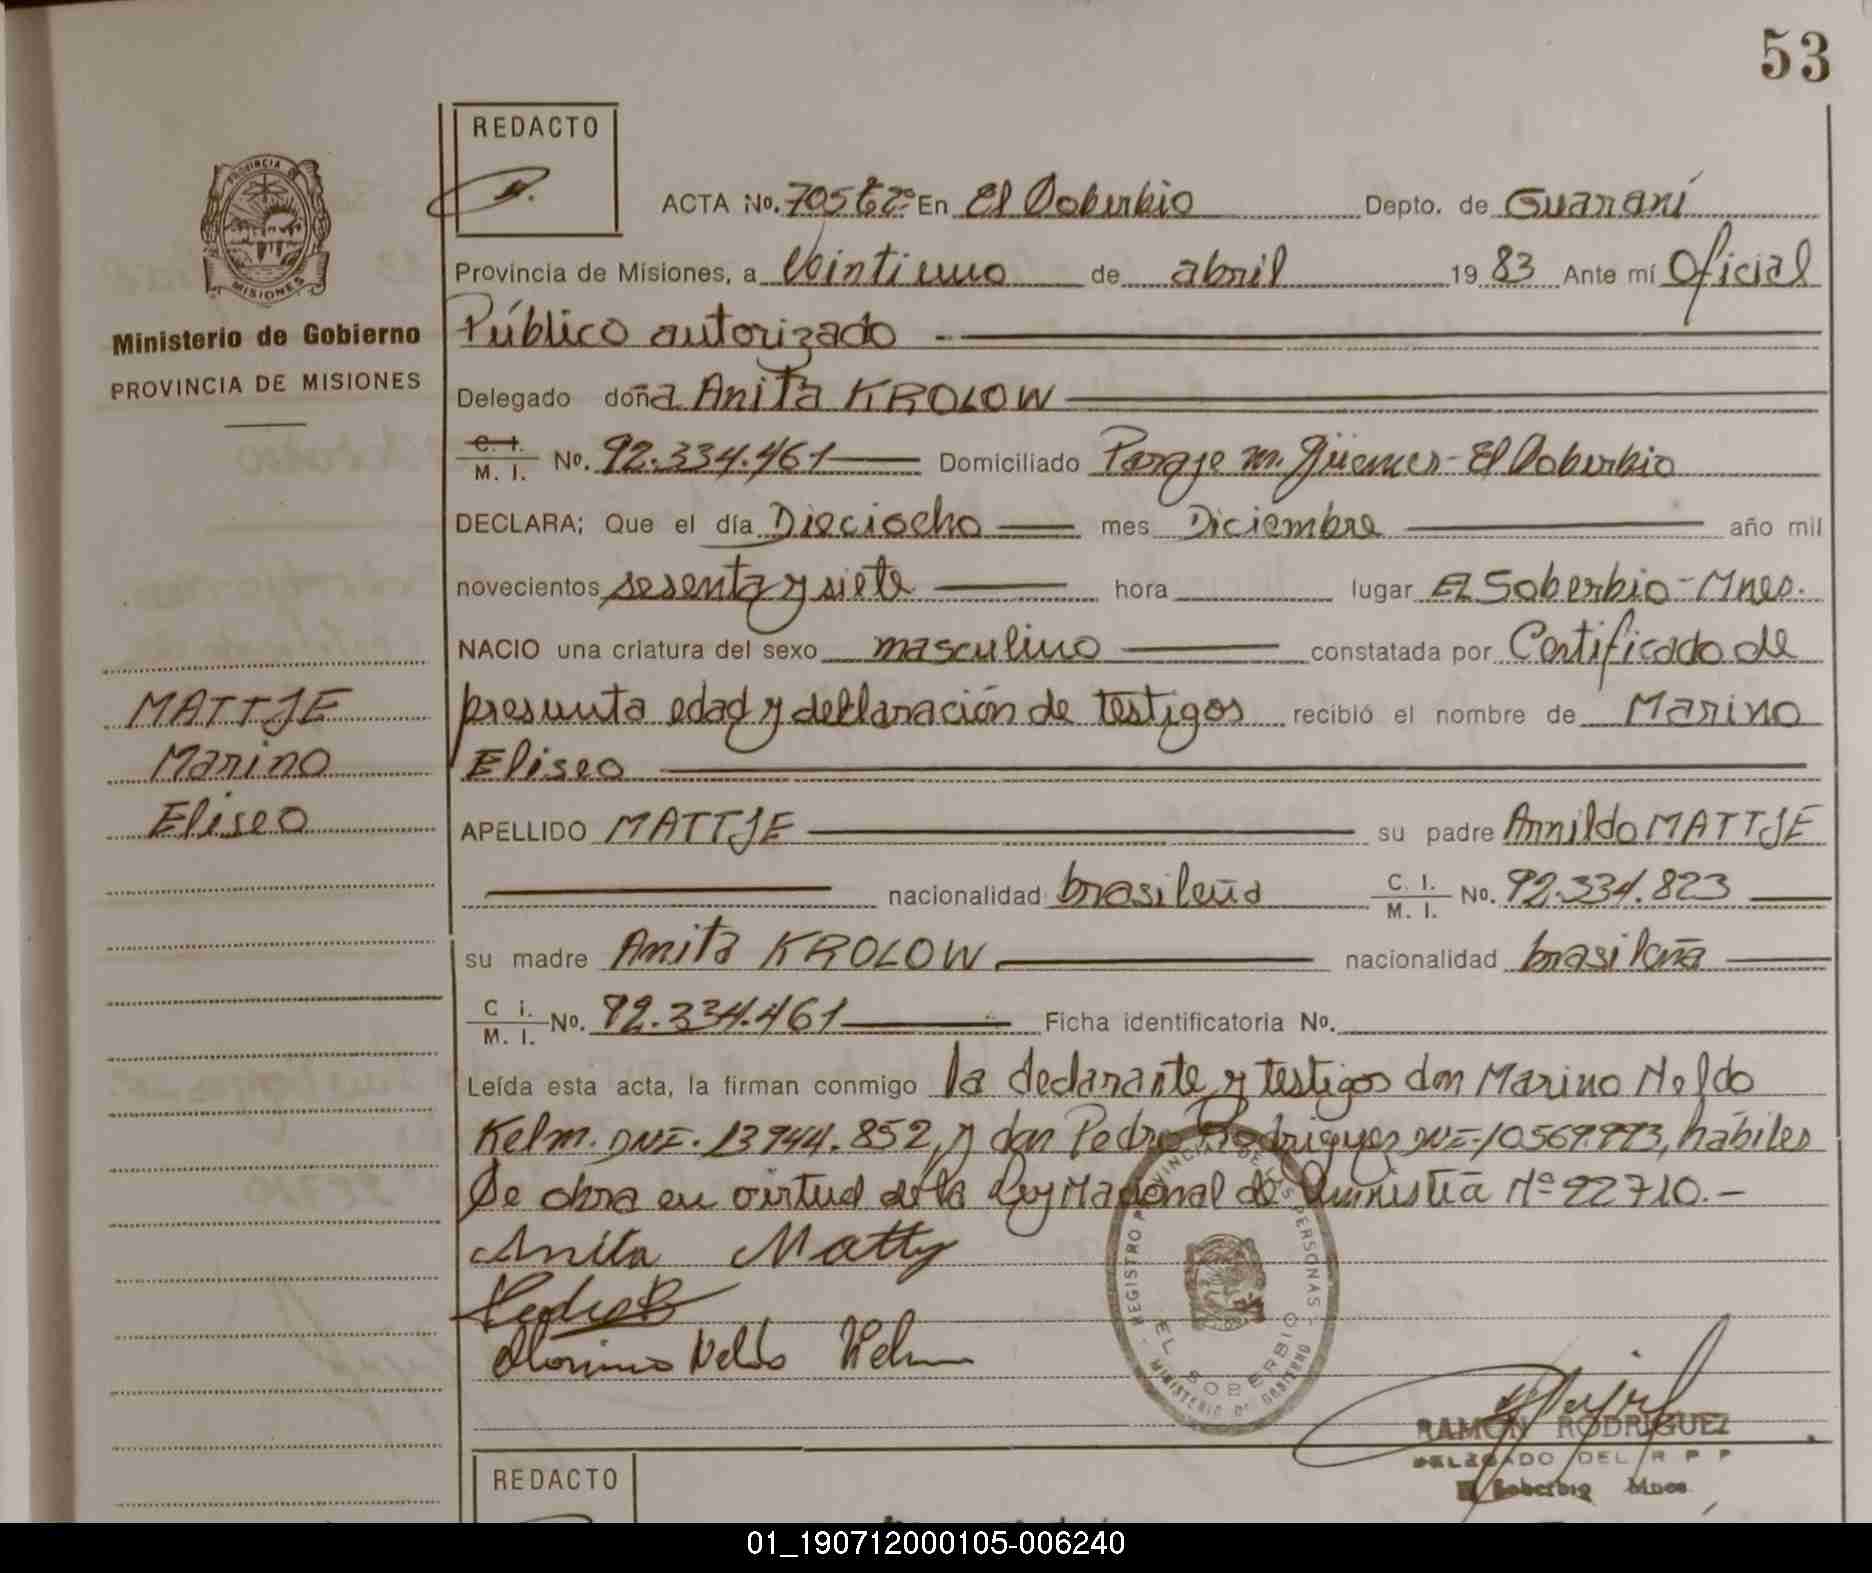 53
REDACTO
PROVINCIA DE
MISIONES
Ministerio de Gobierno
PROVINCIA DE MISIONES
ACTA No. En El Soberbio Depto. de Guaraní
Provincia de Misiones, a Veintiuno de abril 19 83 Ante mí Oficial
Público autorizado
Delegado doña Anita KROLOW
C. I. M. I. No. 92.334.461 Domiciliado Paraje M. Güemes - El Soberbio
DECLARA; Que el día Dieciocho mes Diciembre año mil
novecientos sesenta y siete hora lugar El Soberbio - Mnes.
NACIO una criatura del sexo masculino constatada por Certificado de
presunta edad y declaración de testigos recibió el nombre de Marino
Eliseo
MATTJE
Marino
Eliseo
APELLIDO MATTJE su padre Arnildo MATTJE
nacionalidad brasileña C. I. M. I. No. 92.334.823
su madre Anita KROLOW nacionalidad brasileña
C i. M. I. No. 92.334.461 Ficha identificatoria No.
Leída esta acta, la firman conmigo la declarante y testigos don Marino Neldo
Kelm. DNI. 13944.852, y don Pedro Rodriguez DNI-10569.993, hábiles
Se obra en virtud de la Ley Nacional de Amnistia Nº 22710.-
Anita Mattje
Pedro R
Marino Neldo Kelm
REGISTRO PROVINCIAL DE LAS PERSONAS
EL SOBERBIO
MINISTERIO DE GOBIERNO
RAMON RODRIGUEZ
DELEGADO DEL R P P
El Soberbio Mnes
REDACTO
01_190712000105-006240